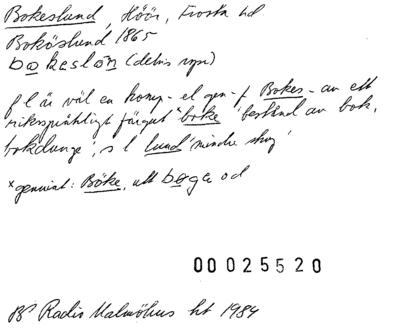 Bokeslund, Höör, Frosta hd
Boköslund 1865
bokeslön (debis
f l är väl en komp - el gen - f Bokes - av ett
riksspråkligt färgat *boke 'bestånd av bok,
bokdunge', s l lund 'mindre skog'
*genuint: Böke, utt böga od
00025520
BP Radio Malmöhus ht 1984